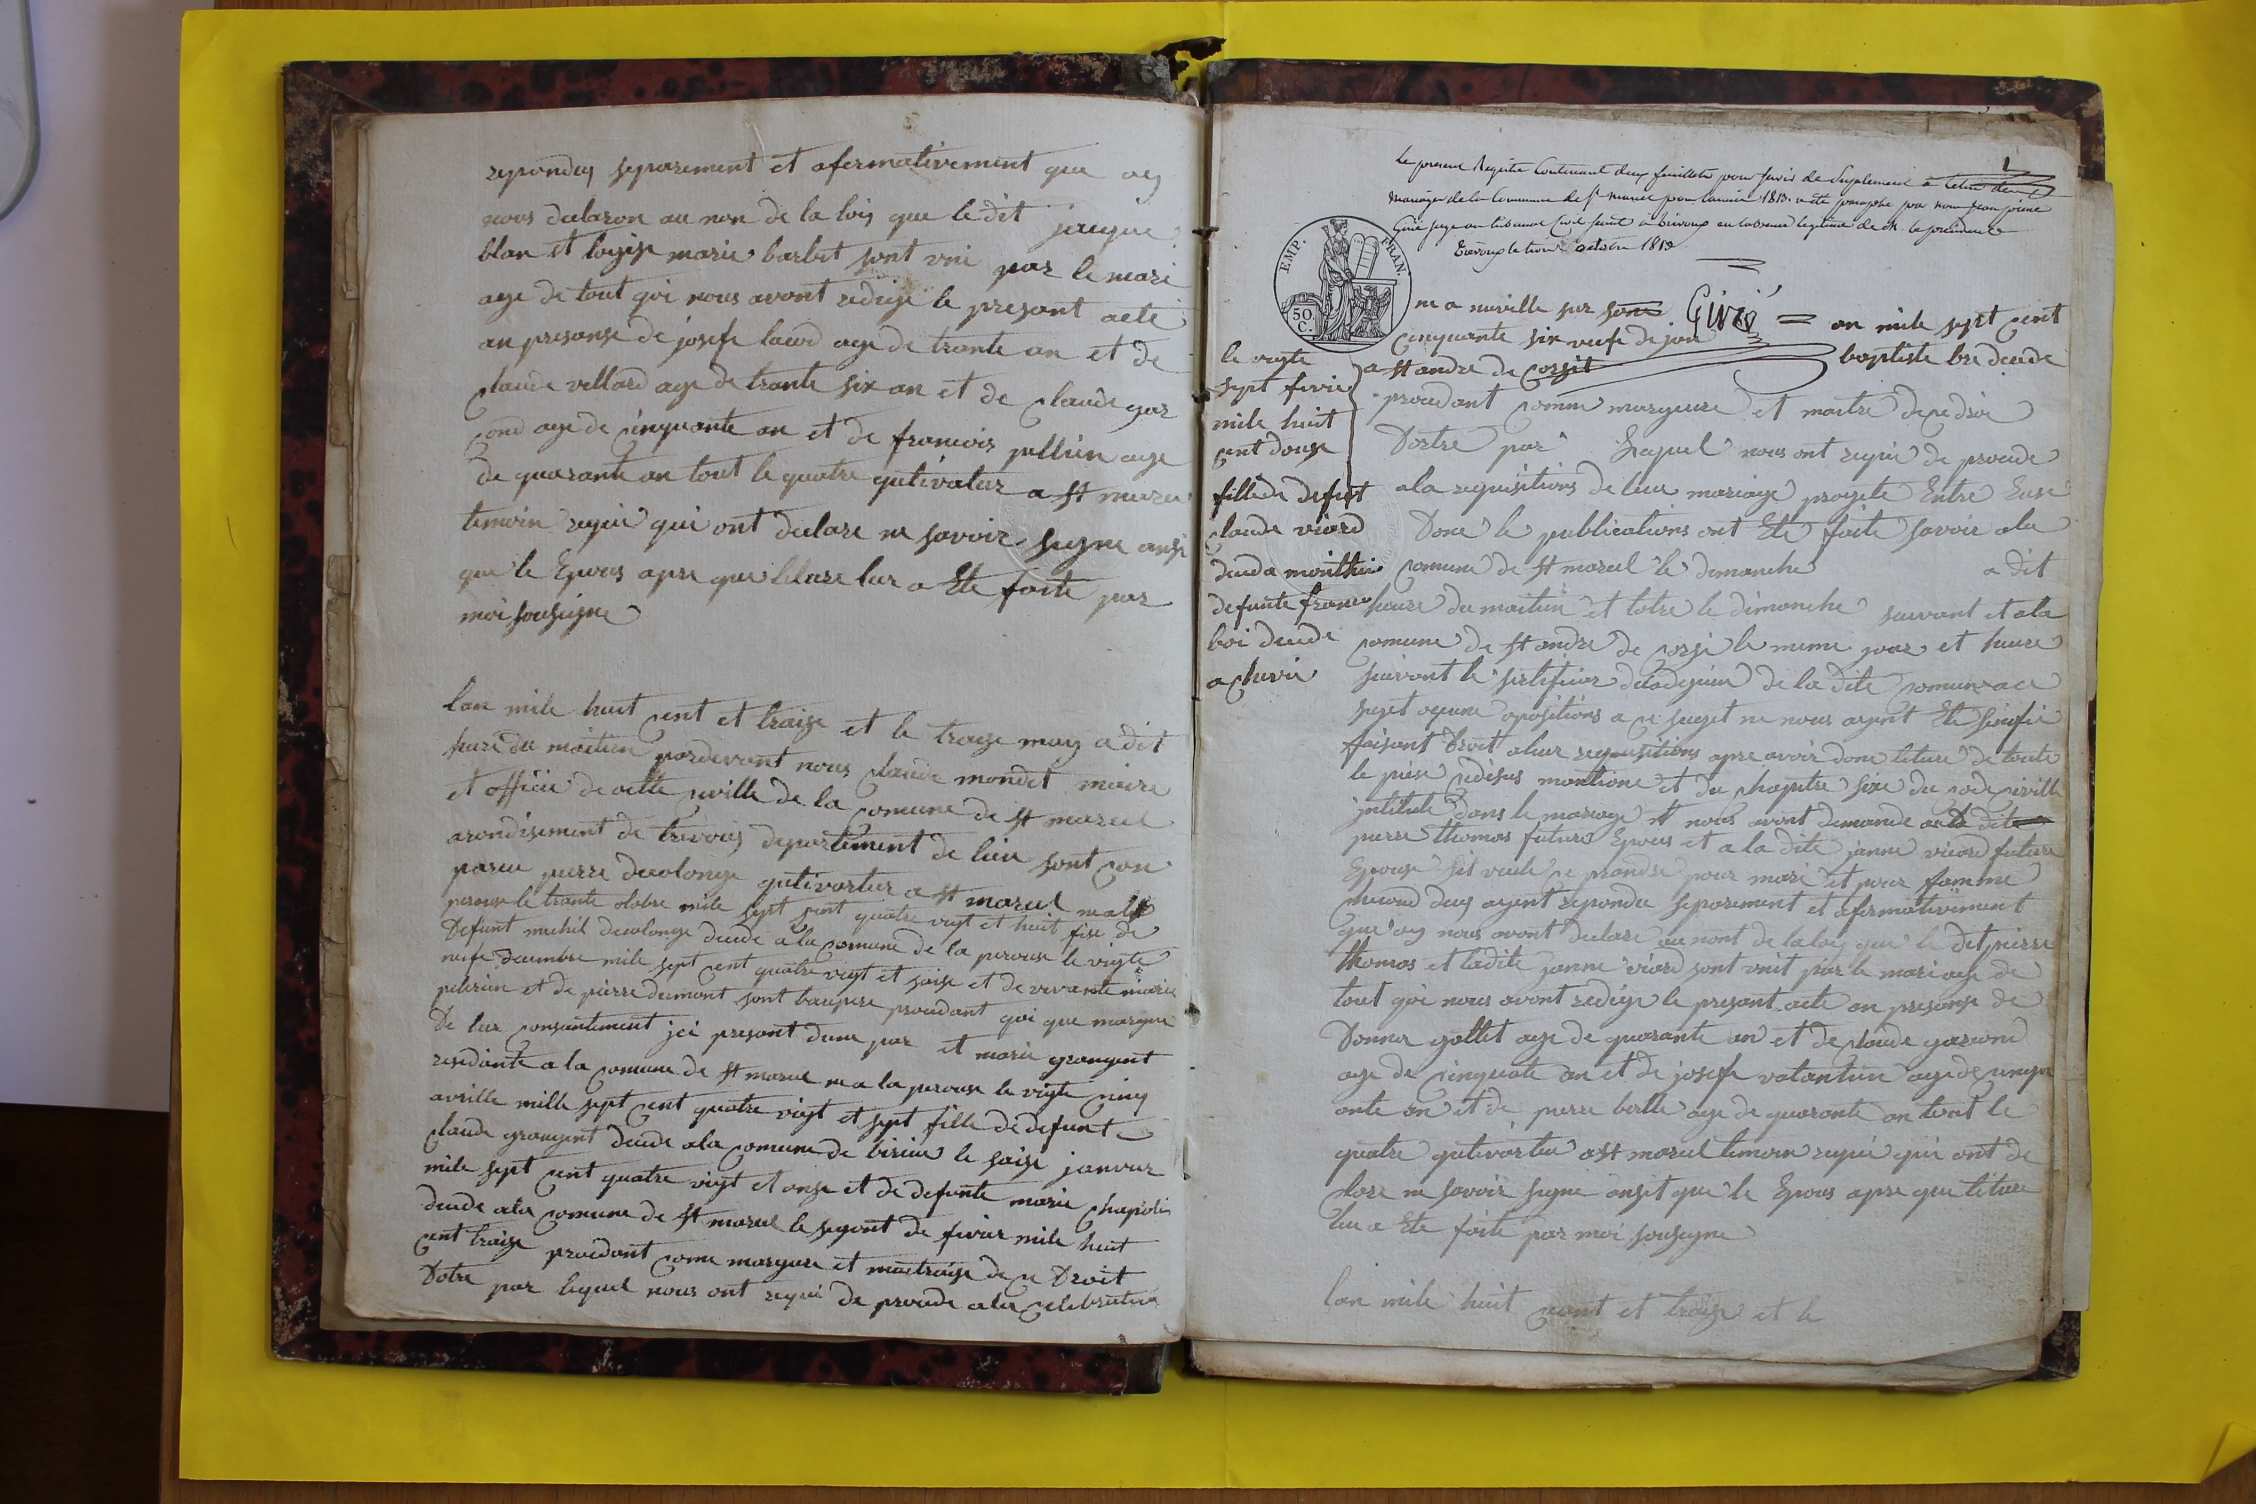 repondus separement et afermativement que oy
nous declaron au non de la loiy que le dit jacque
blan et loyise marie barbet sont vni par le mari
age de tout qoi nous avont redige le presant acte
an presanse de josefe laurd age de trante an et de
claude villard age de trante six an et de claude gar
cond age de cinquante an et de francois pellien age
de quarante an tout le quatre qutivateur a st marcel
temoin requi qui ont declare ne savoir signe ansi
que le Epous apre que leture lur a Ete faite par
moi sousigne
lan mile huit cent et traize et le traize may a dit
heure du maitin pardevant nous claude mondet maire
et officie de cette civille de la comune de st marcel
arondisement de trevous departement de lien sont con
pareu pierre decolonge qutivateur a st marcel
perouse le trante otobre mile sept sent quatre vigt et huit fise de
Defunt michel decolonge decide a la comune de la perouse le vigte
neufe decembre mile sept cent quatre vigt et saise et de vivante marie
pelerin et de pierre dumont sont baupere procedant qoi que margeur
De lur consantement jci presant dune par et marie grangent
residante a la comune de st marcel ne a la perouse le vigte cinq
avrille mille sept cent quatre vigt et sept fille de defunt
claude grangent decide a la comune de birieu le saise janvier
mile sept cent quatre vigt et onze et de defunte marie chapolis
decide ala comune de st marcel le segont de fevrier mile huit
cent traize procedant come margeure et maitraise de ce Droit
Dotre par lequel nous ont requi de procede ala celebration
1
Le present Registre Contenant deux feuillets pour servir de Suplement a celui des
mariages de la Commune de st marcel pour l'année 1813. a été paraphé par nous jean pierre
Girié juge au tribunal civil séant à trévoux en l'absence légitime de M. le président
Trévoux le trois octobre 1813
EMP. FRAN.
50. C.
Girié
ne a neuville sur sone an mile sept cent
cinquante six veufe de jan baptiste bre decide
a st andre de corsit
procedant comme margeure et maitre de ce droi
Dortre par Lequel nous ont requi de procede
ala requisitions de leur mariage progete Entre Euse
Done le publications ont Ete faite savoir ala
comune de st marcel le dimanche a dit
heure du maitin et lotre le dimanche suivant et ala
comune de st andre de corsi le meme jour et heure
suivant le sertificas deladejoin de la dite comune a ce
suget oqune opositions a ce suget ne nous ayent Ete sinifie
faisant Droit aleur requisitions apre avoir done leture de toute
le piese cidesus montione et du chapitre sixe du code civille
jntitule dans le mariage st nous avont demande au dit
pierre thomas futur Epous et a la dite janne viard future
Epouse sil veule ce prandre pour mari et pour famme
checund deus ayent repondu separement et afermativement
que oy nous avont declare au nont de la loiy que le dit pierre
thomas et ladite janne viard sont vnit par le mariage de
tout qoi nous avont redige le presant acte an presanse de
Donner gollet age de quarante an et de claude garcond
age de cinquate an et de josefe volantin age de cinqu
ante an et de pierre berlle age de quarante an tout le
quatre qutivateur a st marcel temoin requi qui ont de
clare ne savoir signe ansit que le Epous apre que leture
leur a Ete faite par moi sousigne
lan mile huit cent et traize et le
le vigte
sept fevrie
mile huit
cent douse
fille de defunt
claude viard
decide a monthieu
defunte france
boi decide
a chivri